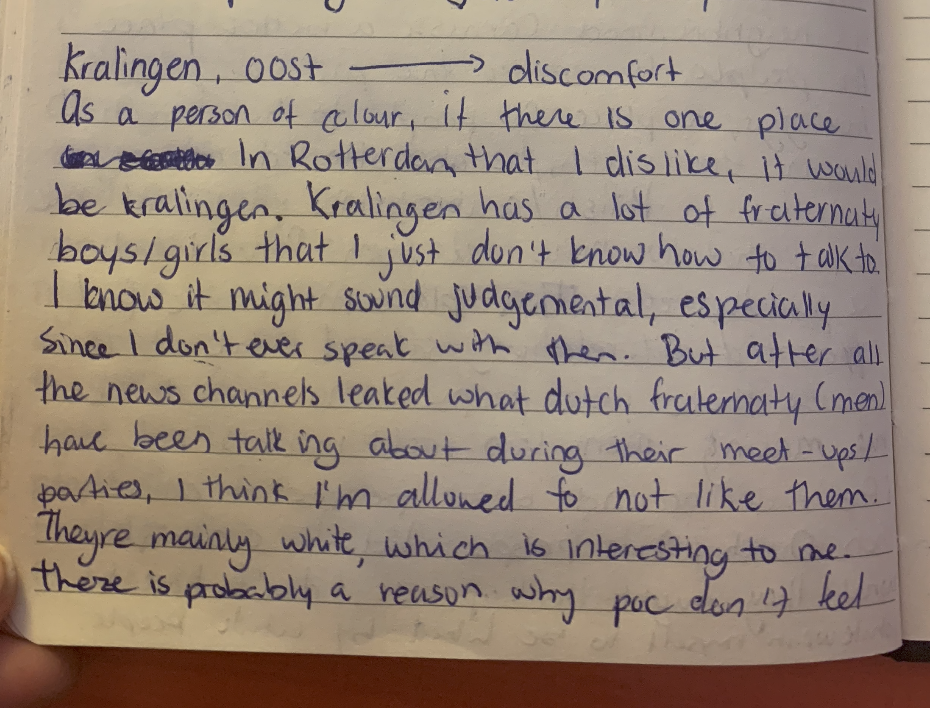 Kralingen, oost → discomfort
As a person of colour, if there is one place
In Rotterdam that I dislike, it would
be kralingen. Kralingen has a lot of fraternaty
boys/girls that I just don't know how to talk to.
I know it might sound judgemental, especially
since I don't ever speak with them. But after all
the news channels leaked what dutch fraternaty (men)
have been talking about during their meet-ups/
parties, I think I'm allowed to not like them.
Theyre mainly white, which is interesting to me.
there is probably a reason why poc don't feel